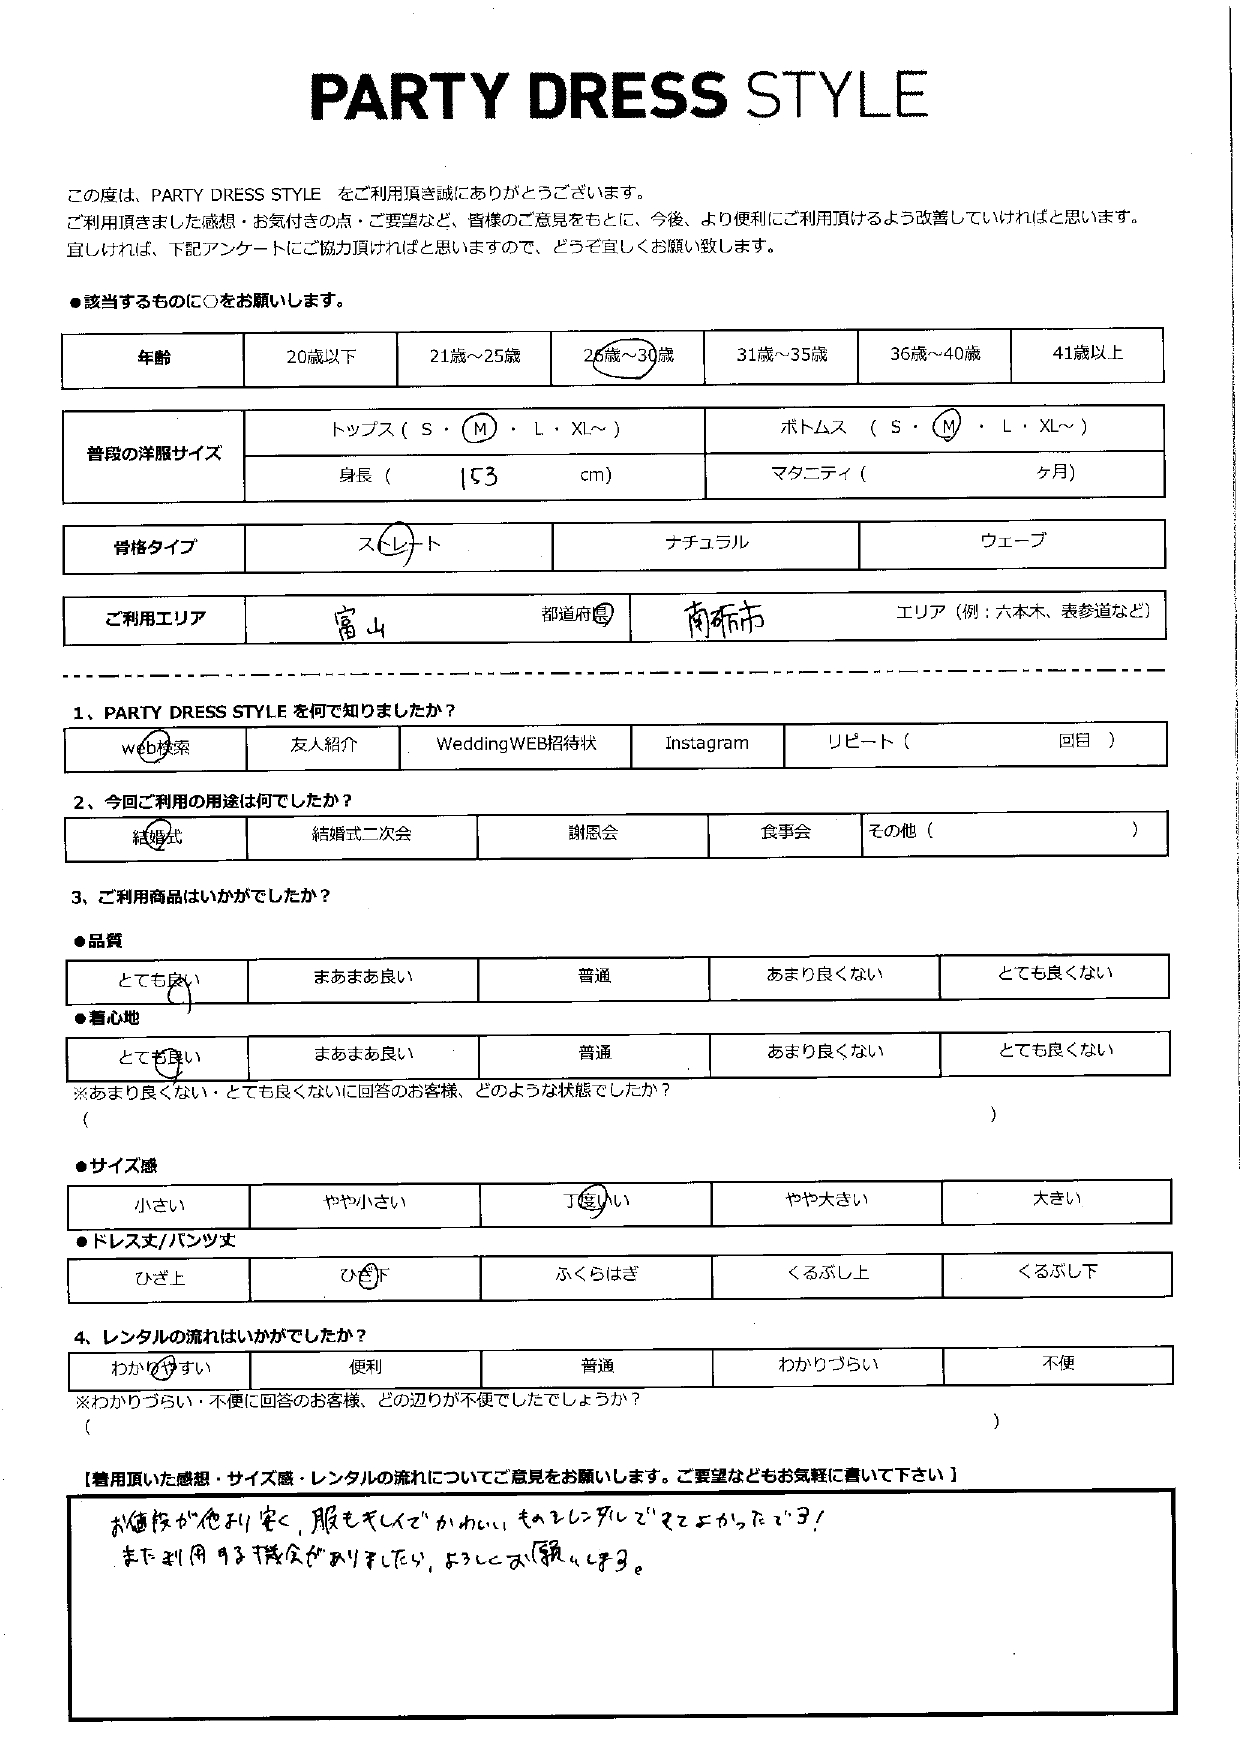 PARTY DRESS STYLE
この度は、PARTY DRESS STYLE をご利用頂き誠にありがとうございます。
ご利用頂きました感想・お気付きの点・ご要望など、皆様のご意見をもとに、今後、より便利にご利用頂けるよう改善していければと思います。
宜しければ、下記アンケートにご協力頂ければと思いますので、どうぞ宜しくお願い致します。
●該当するものに○をお願いします。
年齢 20歳以下 21歳～25歳 26歳～30歳 31歳～35歳 36歳～40歳 41歳以上
普段の洋服サイズ
トップス ( S ・ M ・ L ・ XL～ ) ボトムス ( S ・ M ・ L ・ XL～ )
身長 ( 153 cm) マタニティ ( ヶ月)
骨格タイプ ストレート ナチュラル ウェーブ
ご利用エリア 富山 都道府県 南砺市 エリア（例：六本木、表参道など）
1、PARTY DRESS STYLE を何で知りましたか？
web検索 友人紹介 WeddingWEB招待状 Instagram リピート ( 回目 )
2、今回ご利用の用途は何でしたか？
結婚式 結婚式二次会 謝恩会 食事会 その他 ( )
3、ご利用商品はいかがでしたか？
●品質
とても良い まあまあ良い 普通 あまり良くない とても良くない
●着心地
とても良い まあまあ良い 普通 あまり良くない とても良くない
※あまり良くない・とても良くないに回答のお客様、どのような状態でしたか？
( )
●サイズ感
小さい やや小さい 丁度いい やや大きい 大きい
●ドレス丈/パンツ丈
ひざ上 ひざ下 ふくらはぎ くるぶし上 くるぶし下
4、レンタルの流れはいかがでしたか？
わかりやすい 便利 普通 わかりづらい 不便
※わかりづらい・不便に回答のお客様、どの辺りが不便でしたでしょうか？
( )
【着用頂いた感想・サイズ感・レンタルの流れについてご意見をお願いします。ご要望などもお気軽に書いて下さい】
お値段が他より安く、服もキレイでかわいいものをレンタルできてよかったです!
また利用する機会がありましたら、よろしくお願いします。